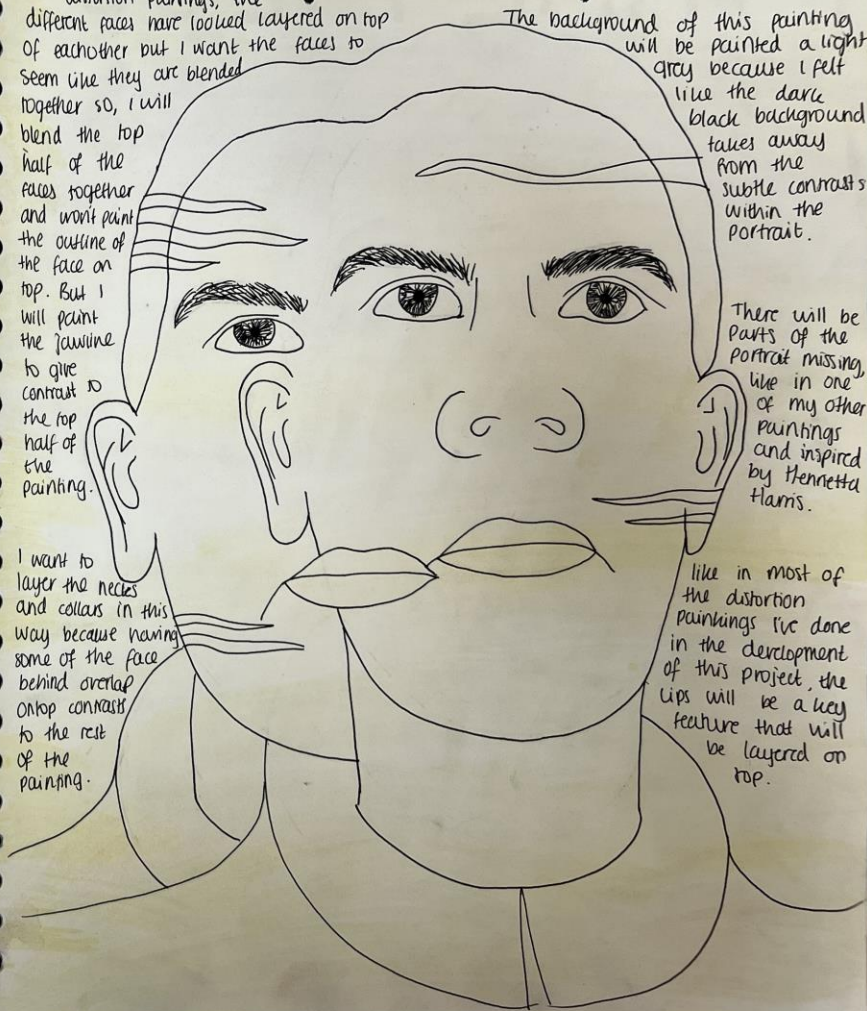 paintings, the
different faces have looked layered on top
of eachother but I want the faces to
seem like they are blended
together so, I will
blend the top
half of the
faces together
and won't paint
the outline of
the face on
top. But I
will paint
the jawline
to give
contrast to
the top
half of
the
painting.
I want to
layer the necks
and collars in this
way because having
some of the face
behind overlap
ontop contrasts
to the rest
of the
painting.
The background of this painting
will be painted a light
grey because I felt
like the dark
black background
takes away
from the
subtle contrasts
within the
portrait.
There will be
parts of the
portrait missing,
like in one
of my other
paintings
and inspired
by Henrietta
Harris.
like in most of
the distortion
paintings I've done
in the development
of this project, the
lips will be a key
feature that will
be layered on
top.